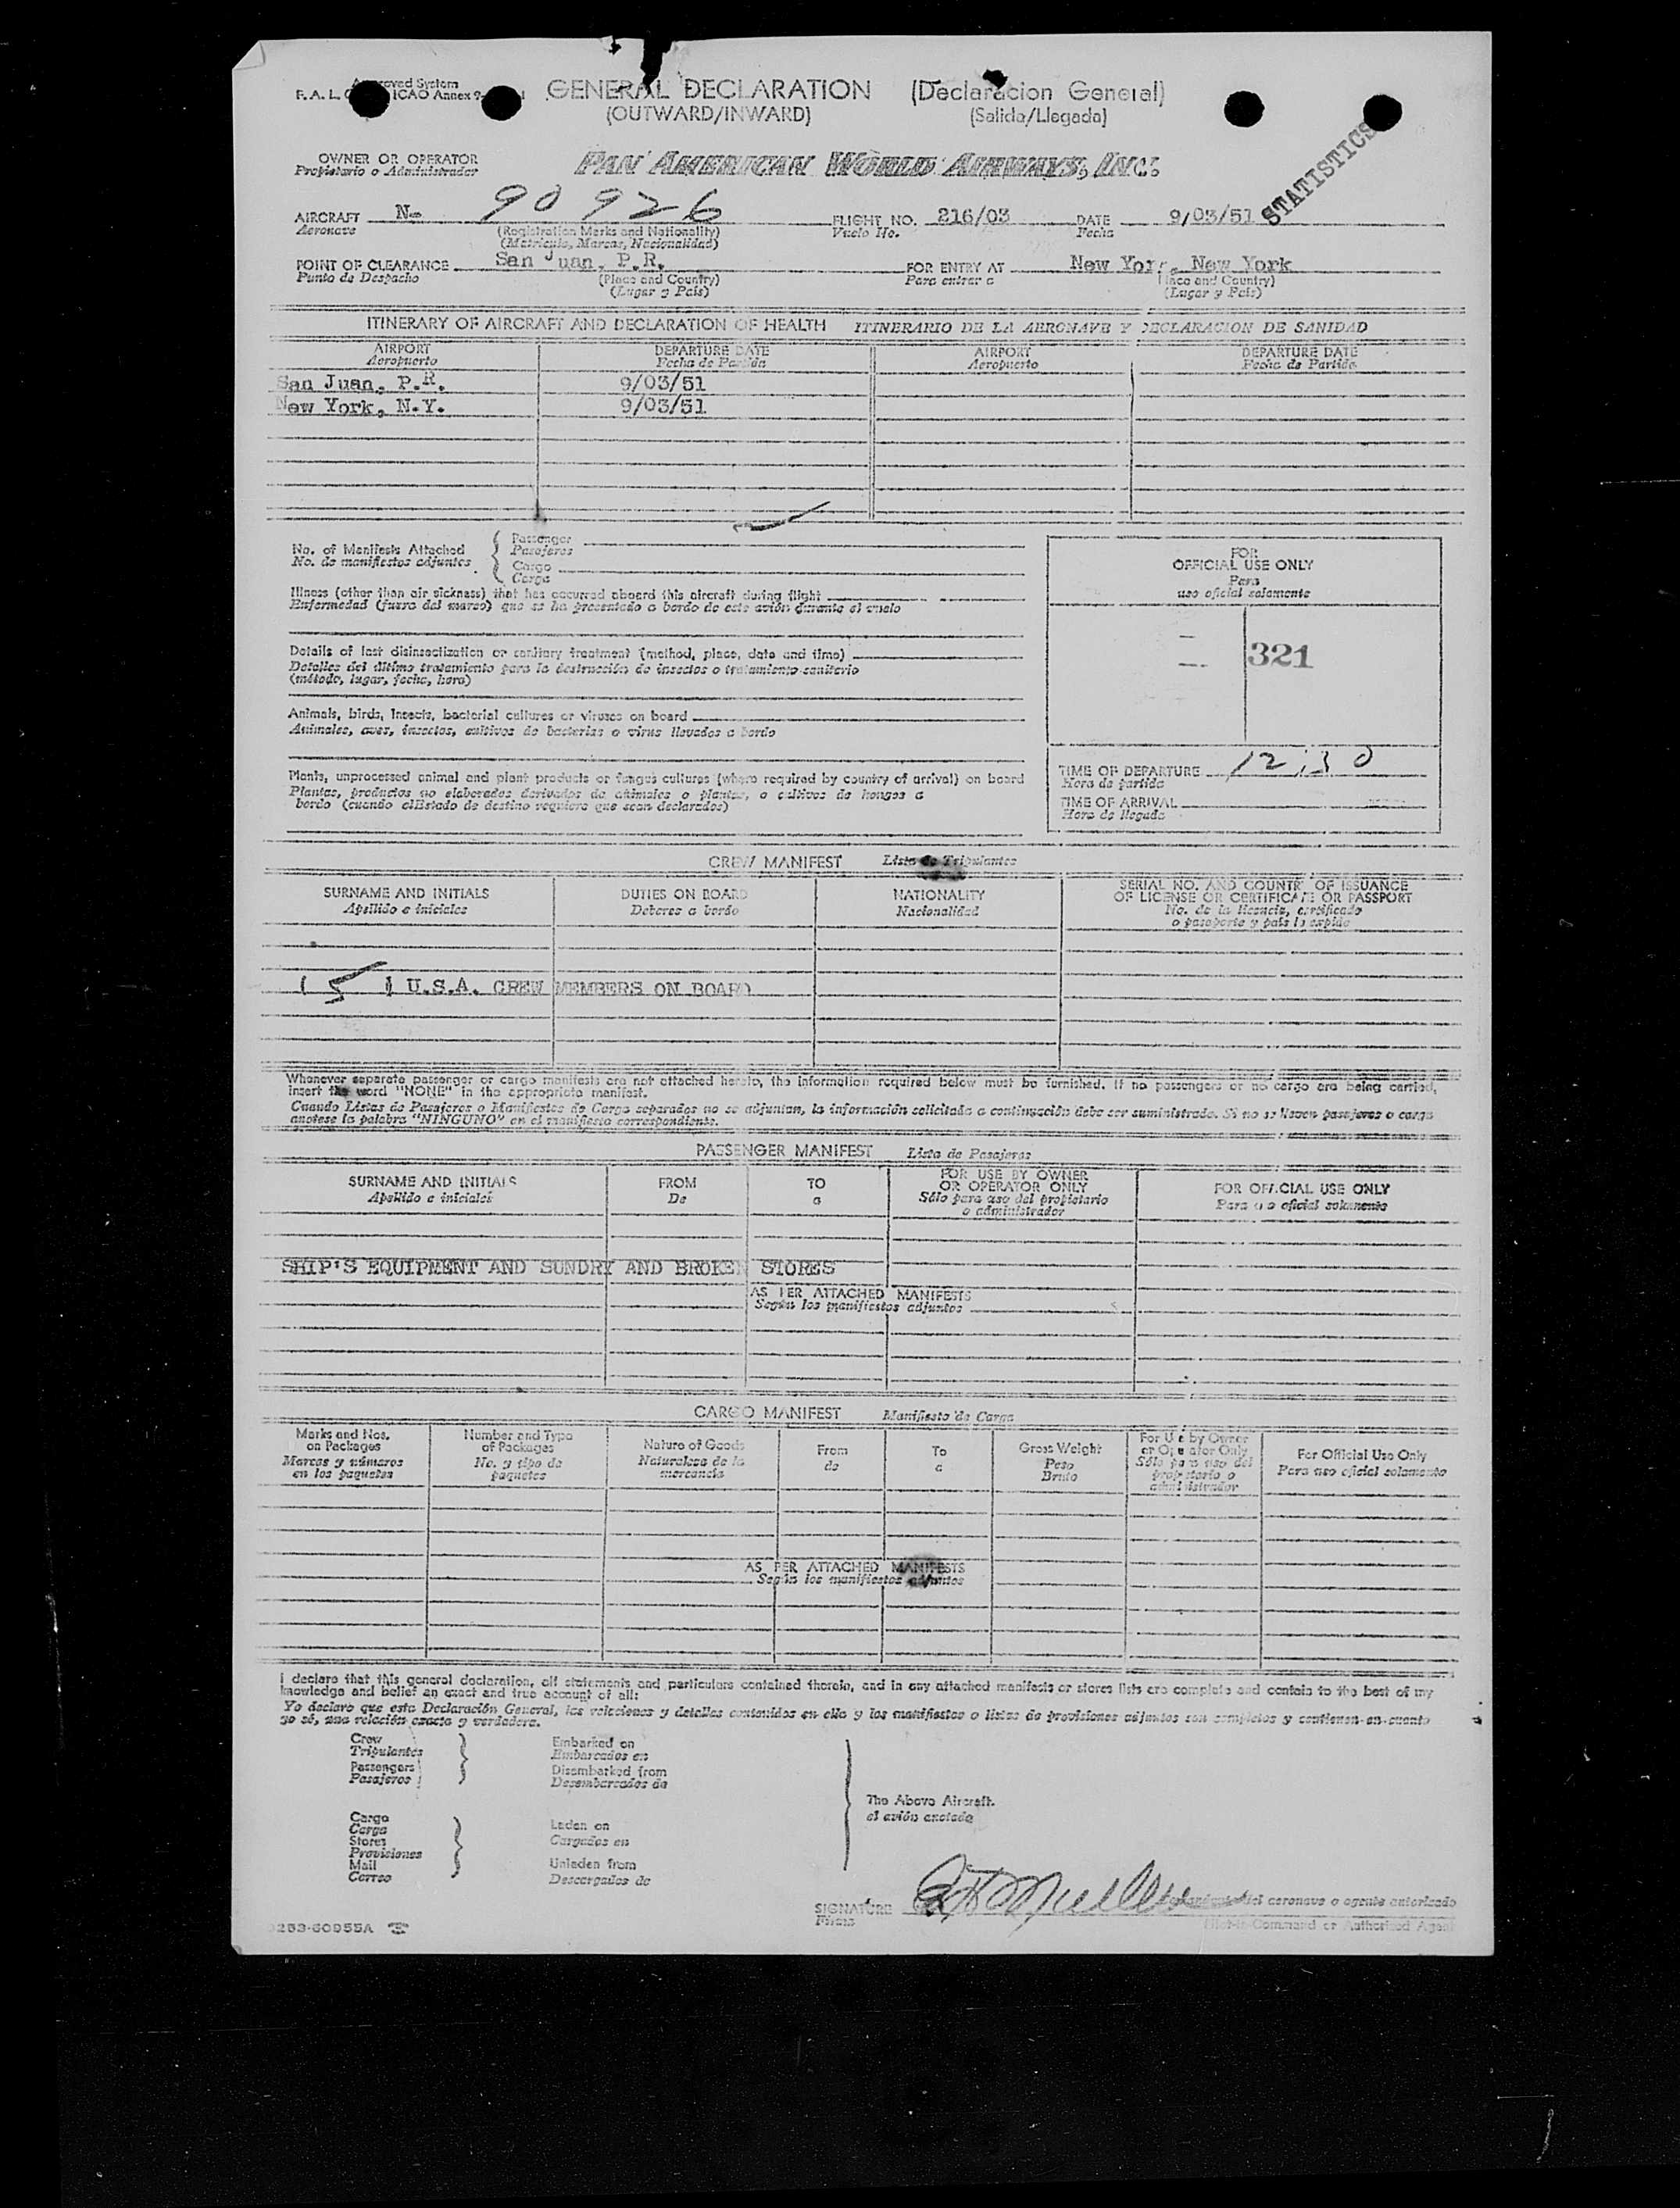 Approved System
F. A. L. ICAO Annex 9
GENERAL DECLARATION (Declaracion General)
(OUTWARD/INWARD) (Salida/Llegada)
STATISTICS
OWNER OR OPERATOR PAN AMERICAN WORLD AIRWAYS, INC.
Propietario o Administrador
AIRCRAFT N- 90926 FLIGHT NO. 216/03 DATE 9/03/51
Aeronave (Registration Marks and Nationality) Vuelo No. Fecha
(Matricula, Marcas, Nacionalidad)
POINT OF CLEARANCE San Juan, P.R. FOR ENTRY AT New York, New York
Punto de Despacho (Place and Country) Para entrar a (Place and Country)
(Lugar y Pais) (Lugar y Pais)
ITINERARY OF AIRCRAFT AND DECLARATION OF HEALTH ITINERARIO DE LA AERONAVE Y DECLARACION DE SANIDAD
AIRPORT DEPARTURE DATE AIRPORT DEPARTURE DATE
Aeropuerto Fecha de Partida Aeropuerto Fecha de Partida
San Juan, P.R. 9/03/51
New York, N.Y. 9/03/51
No. of Manifests Attached
No. de manifiestos adjuntos
Passenger
Pasajeros
Cargo
Carga
Illness (other than air sickness) that has occurred aboard this aircraft during flight
Enfermedad (fuera del mareo) que se ha presentado a bordo de este avión durante el vuelo
Details of last disinsectization or sanitary treatment (method, place, date and time)
Detalles del último tratamiento para la destrucción de insectos o tratamiento sanitario
(método, lugar, fecha, hora)
Animals, birds, insects, bacterial cultures or viruses on board
Animales, aves, insectos, cultivos de bacterias o virus llevados a bordo
Plants, unprocessed animal and plant products or fungus cultures (where required by country of arrival) on board
Plantas, productos no elaborados derivados de animales o plantas, o cultivos de hongos a
bordo (cuando el Estado de destino requiera que sean declarados)
FOR
OFFICIAL USE ONLY
Para
uso oficial solamente
321
TIME OF DEPARTURE 12:30
Hora de partida
TIME OF ARRIVAL
Hora de llegada
CREW MANIFEST Lista de Tripulantes
SURNAME AND INITIALS DUTIES ON BOARD NATIONALITY SERIAL NO. AND COUNTRY OF ISSUANCE
OF LICENSE OR CERTIFICATE OR PASSPORT
Apellido e iniciales Deberes a bordo Nacionalidad No. de la licencia, certificado
o pasaporte y pais lo expide
( 5 ) U.S.A. CREW MEMBERS ON BOARD
Whenever separate passenger or cargo manifests are not attached hereto, the information required below must be furnished. If no passengers or no cargo are being carried,
insert the word "NONE" in the appropriate manifest.
Cuando Listas de Pasajeros o Manifiestos de Carga separados no se adjuntan, la información solicitada a continuación debe ser suministrada. Si no se llevan pasajeros o carga
anotese la palabra "NINGUNO" en el manifiesto correspondiente.
PASSENGER MANIFEST Lista de Pasajeros
SURNAME AND INITIALS FROM TO FOR USE BY OWNER
OR OPERATOR ONLY FOR OFFICIAL USE ONLY
Apellido e iniciales De a Sólo para uso del propietario
o administrador Para uso oficial solamente
SHIP'S EQUIPMENT AND SUNDRY AND BROKEN STORES
AS PER ATTACHED MANIFESTS
Según los manifiestos adjuntos
CARGO MANIFEST Manifiesto de Carga
Marks and Nos.
on Packages
Marcas y números
en los paquetes
Number and Type
of Packages
No. y tipo de
paquetes
Nature of Goods
Naturaleza de la
mercancía
From
de
To
a
Gross Weight
Peso
Bruto
For Use by Owner
or Operator Only
Sólo para uso del
propietario o
administrador
For Official Use Only
Para uso oficial solamente
AS PER ATTACHED MANIFESTS
Según los manifiestos adjuntos
I declare that this general declaration, all statements and particulars contained therein, and in any attached manifests or stores lists are complete and contain to the best of my
knowledge and belief an exact and true account of all:
Yo declaro que esta Declaración General, las relaciones y detalles contenidos en ella y los manifiestos o listas de provisiones adjuntos son completos y contienen en cuanto
yo sé, una relación exacta y verdadera.
Crew
Tripulantes
Passengers
Pasajeros
Embarked on
Embarcados en
Disembarked from
Desembarcados de
Cargo
Carga
Stores
Provisiones
Mail
Correo
Laden on
Cargados en
Unladen from
Descargados de
The Above Aircraft.
el avión anotado
SIGNATURE
Firma
del aeronave o agente autorizado
Pilot-in-Command or Authorized Agent